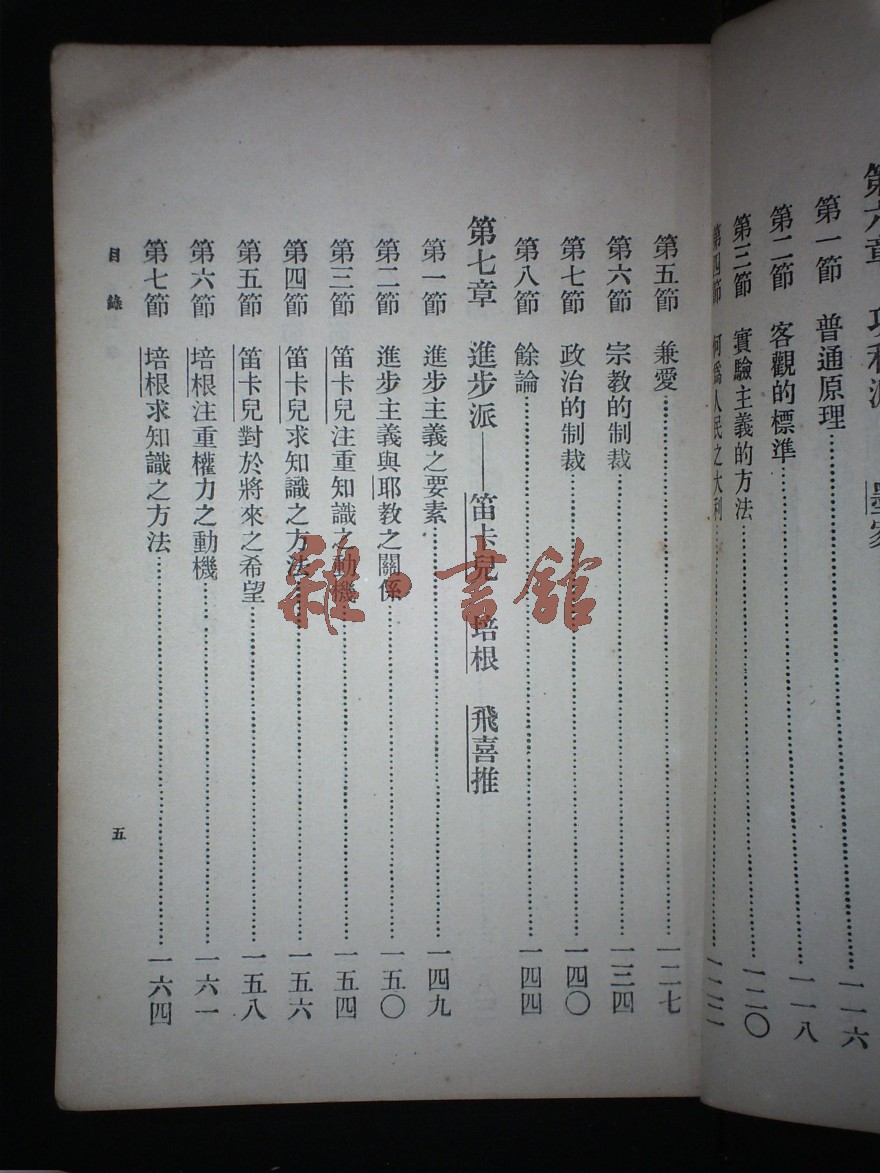 第六章 功利派 墨家
第一節 普通原理……一一六
第二節 客觀的標準……一一八
第三節 實驗主義的方法……一二〇
第四節 何爲人民之大利……一二二
第五節 兼愛……一二七
第六節 宗教的制裁……一三四
第七節 政治的制裁……一四〇
第八節 餘論……一四四
第七章 進步派——笛卡兒 培根 飛喜推
第一節 進步主義之要素……一四九
第二節 進步主義與耶教之關係……一五〇
第三節 笛卡兒注重知識之動機……一五四
第四節 笛卡兒求知識之方法……一五六
第五節 笛卡兒對於將來之希望……一五八
第六節 培根注重權力之動機……一六一
第七節 培根求知識之方法……一六四
目錄
五
書館